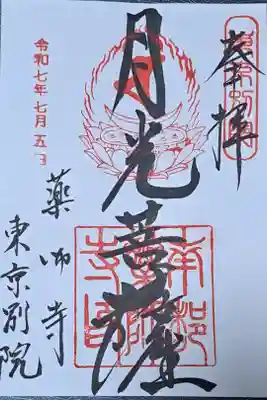 奉拝
月光菩薩
令和七年七月五日
薬師寺
東京別院